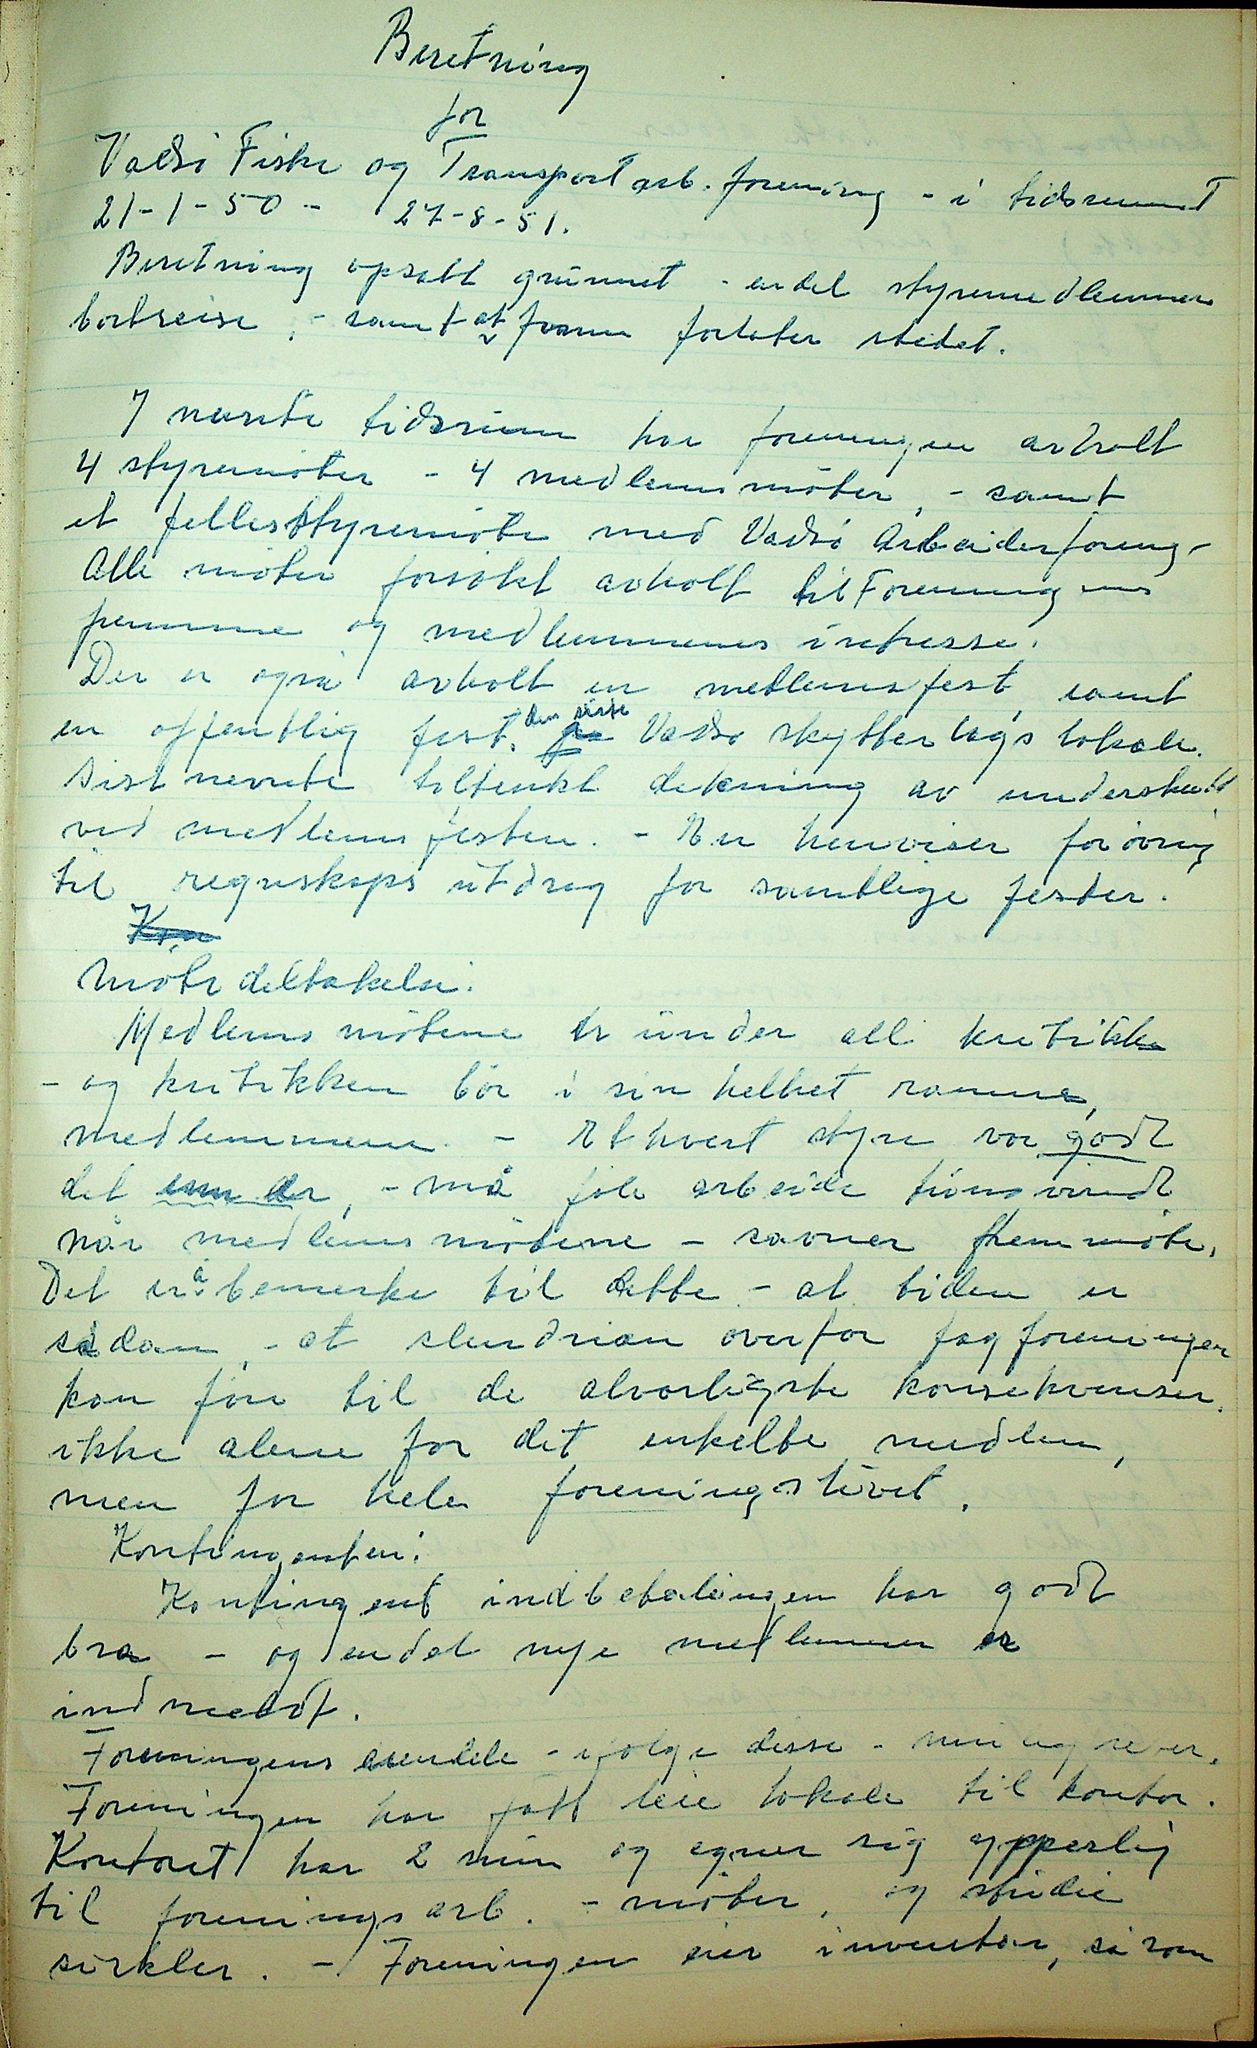 Beretning
for
Vadsö Fiske og Transportarb. forening - i tidsrummet
21-1-50 - 27-8-51.
Beretning opsatt grunnet - endel styremedlemmers
bortreise, - samt at form forlater stedet.
I nevnte tidsrum har foreningen avholt
4 styremöter - 4 medlemsmöter, - samt
et fellesstyremöte med Vadsö Arbeiderforeng-
Alle möter forsökt avholt til Foreningens
fremme og medlemmenes intresse.
Der er også avholt en medlemsfest, samt
en offentlig fest, den siste Vadsö skytterlags lokale.
Sist nevnte tiltenkt dekning av underskudd
ved medlemsfesten. - En henviser forövrig
til regnskaps utdrag for samtlige fester.
Möte deltakelse.
Medlems mötene er under all kritikk
- og kritikken bör i sin helhet ramme,
medlemmene. - Ethvert styre vor godt
det enn er, - må föle arbeide tungvindt
når medlems mötene - savner fremmöte.
Det er å bemerke til dette - at tiden er
sådan, - at slendrian overfor fagforeninger
kan före til de alvorligste konsekvenser.
ikke alene for det enkelte medlem,
men for hele foreningslivet.
Kontingenten:
Kontingent indbetalingen har godt
bra - og endel nye medlemmer er
indmeldt.
Foreningens eiendele - ifölge disse -
Foreningen har fått leie lokale til kontor.
Kontoret har 2 rum og egner sig ypperlig
til foreningsarb. - möter, og studie
sirkler. - Foreningen eier inventar, så som